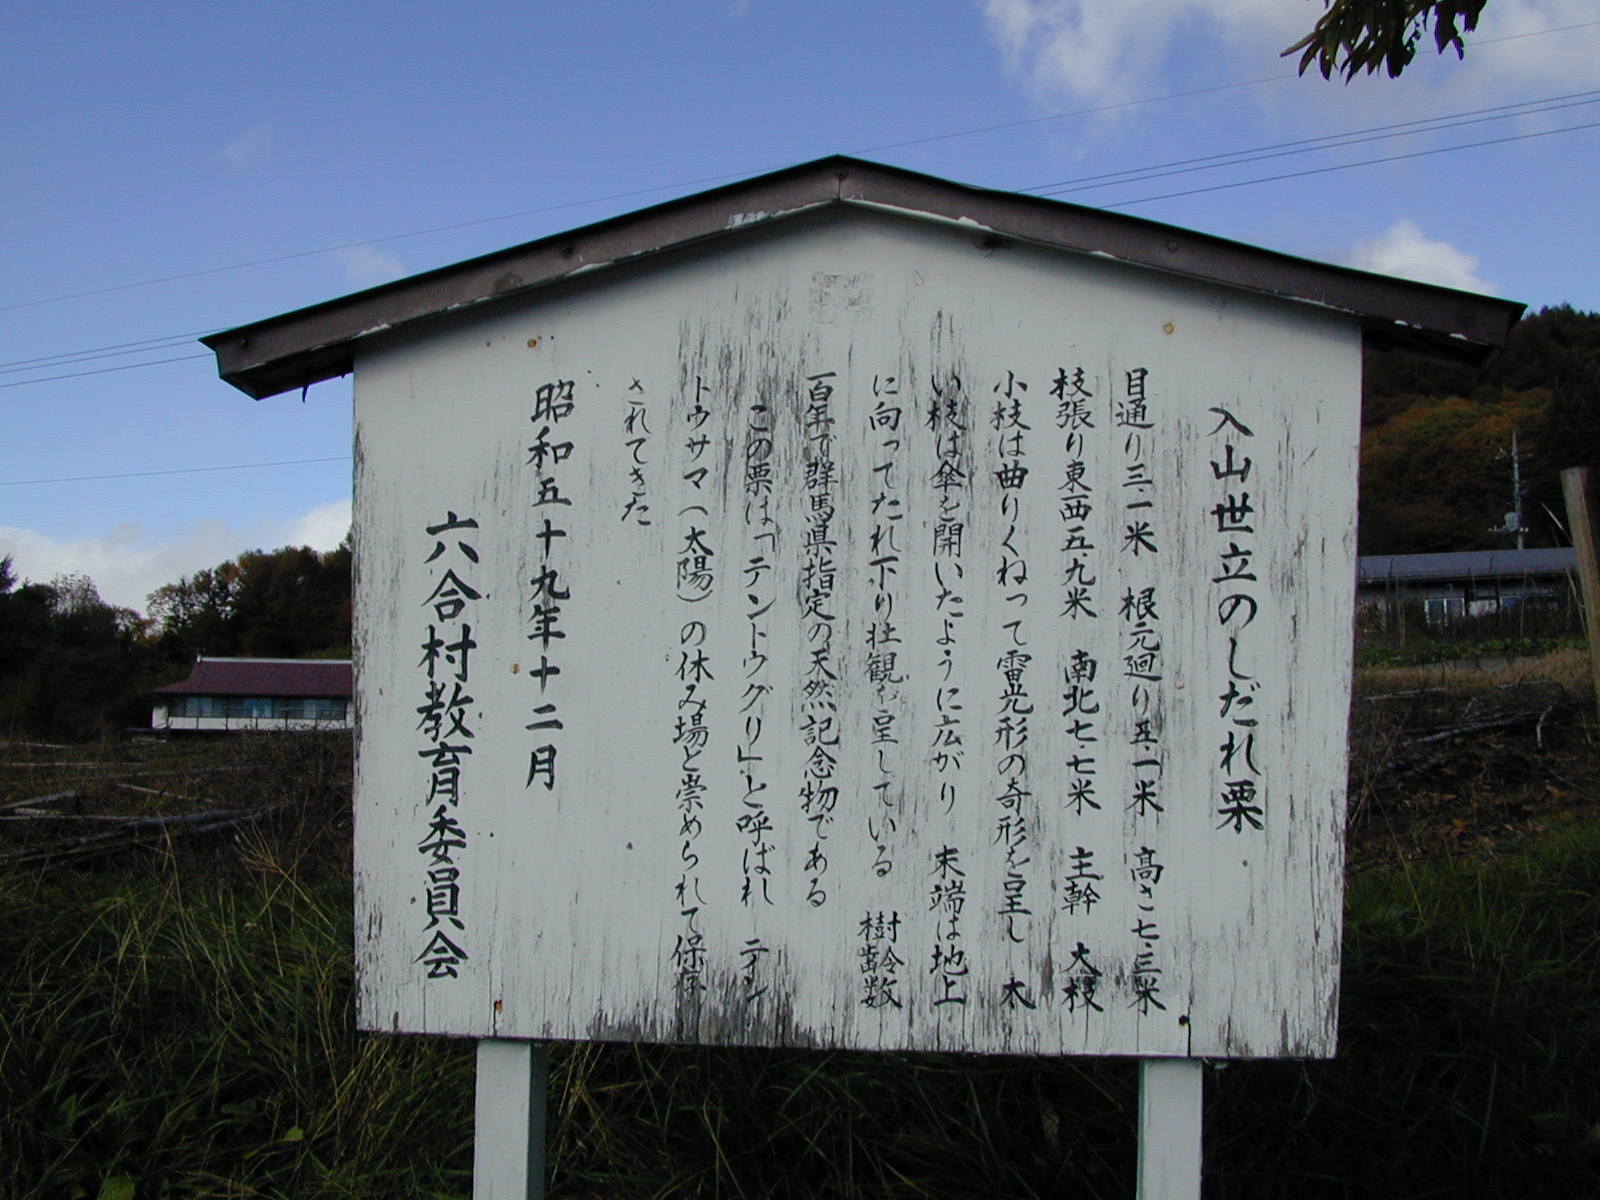 入山世立のしだれ栗
目通り三.一米 根元廻り五.一米 高さ七.三米
枝張り東西五.九米 南北七.七米 主幹 大枝
小枝は曲りくねって雷光形の奇形を呈し 木
い枝は傘を開いたように広がり 末端は地上
に向ってたれ下り壮観を呈している 樹齢数
百年で群馬県指定の天然記念物である
この栗は「テントウグリ」と呼ばれ テン
トウサマ(太陽)の休み場と崇められて保存
されてきた
昭和五十九年十二月
六合村教育委員会